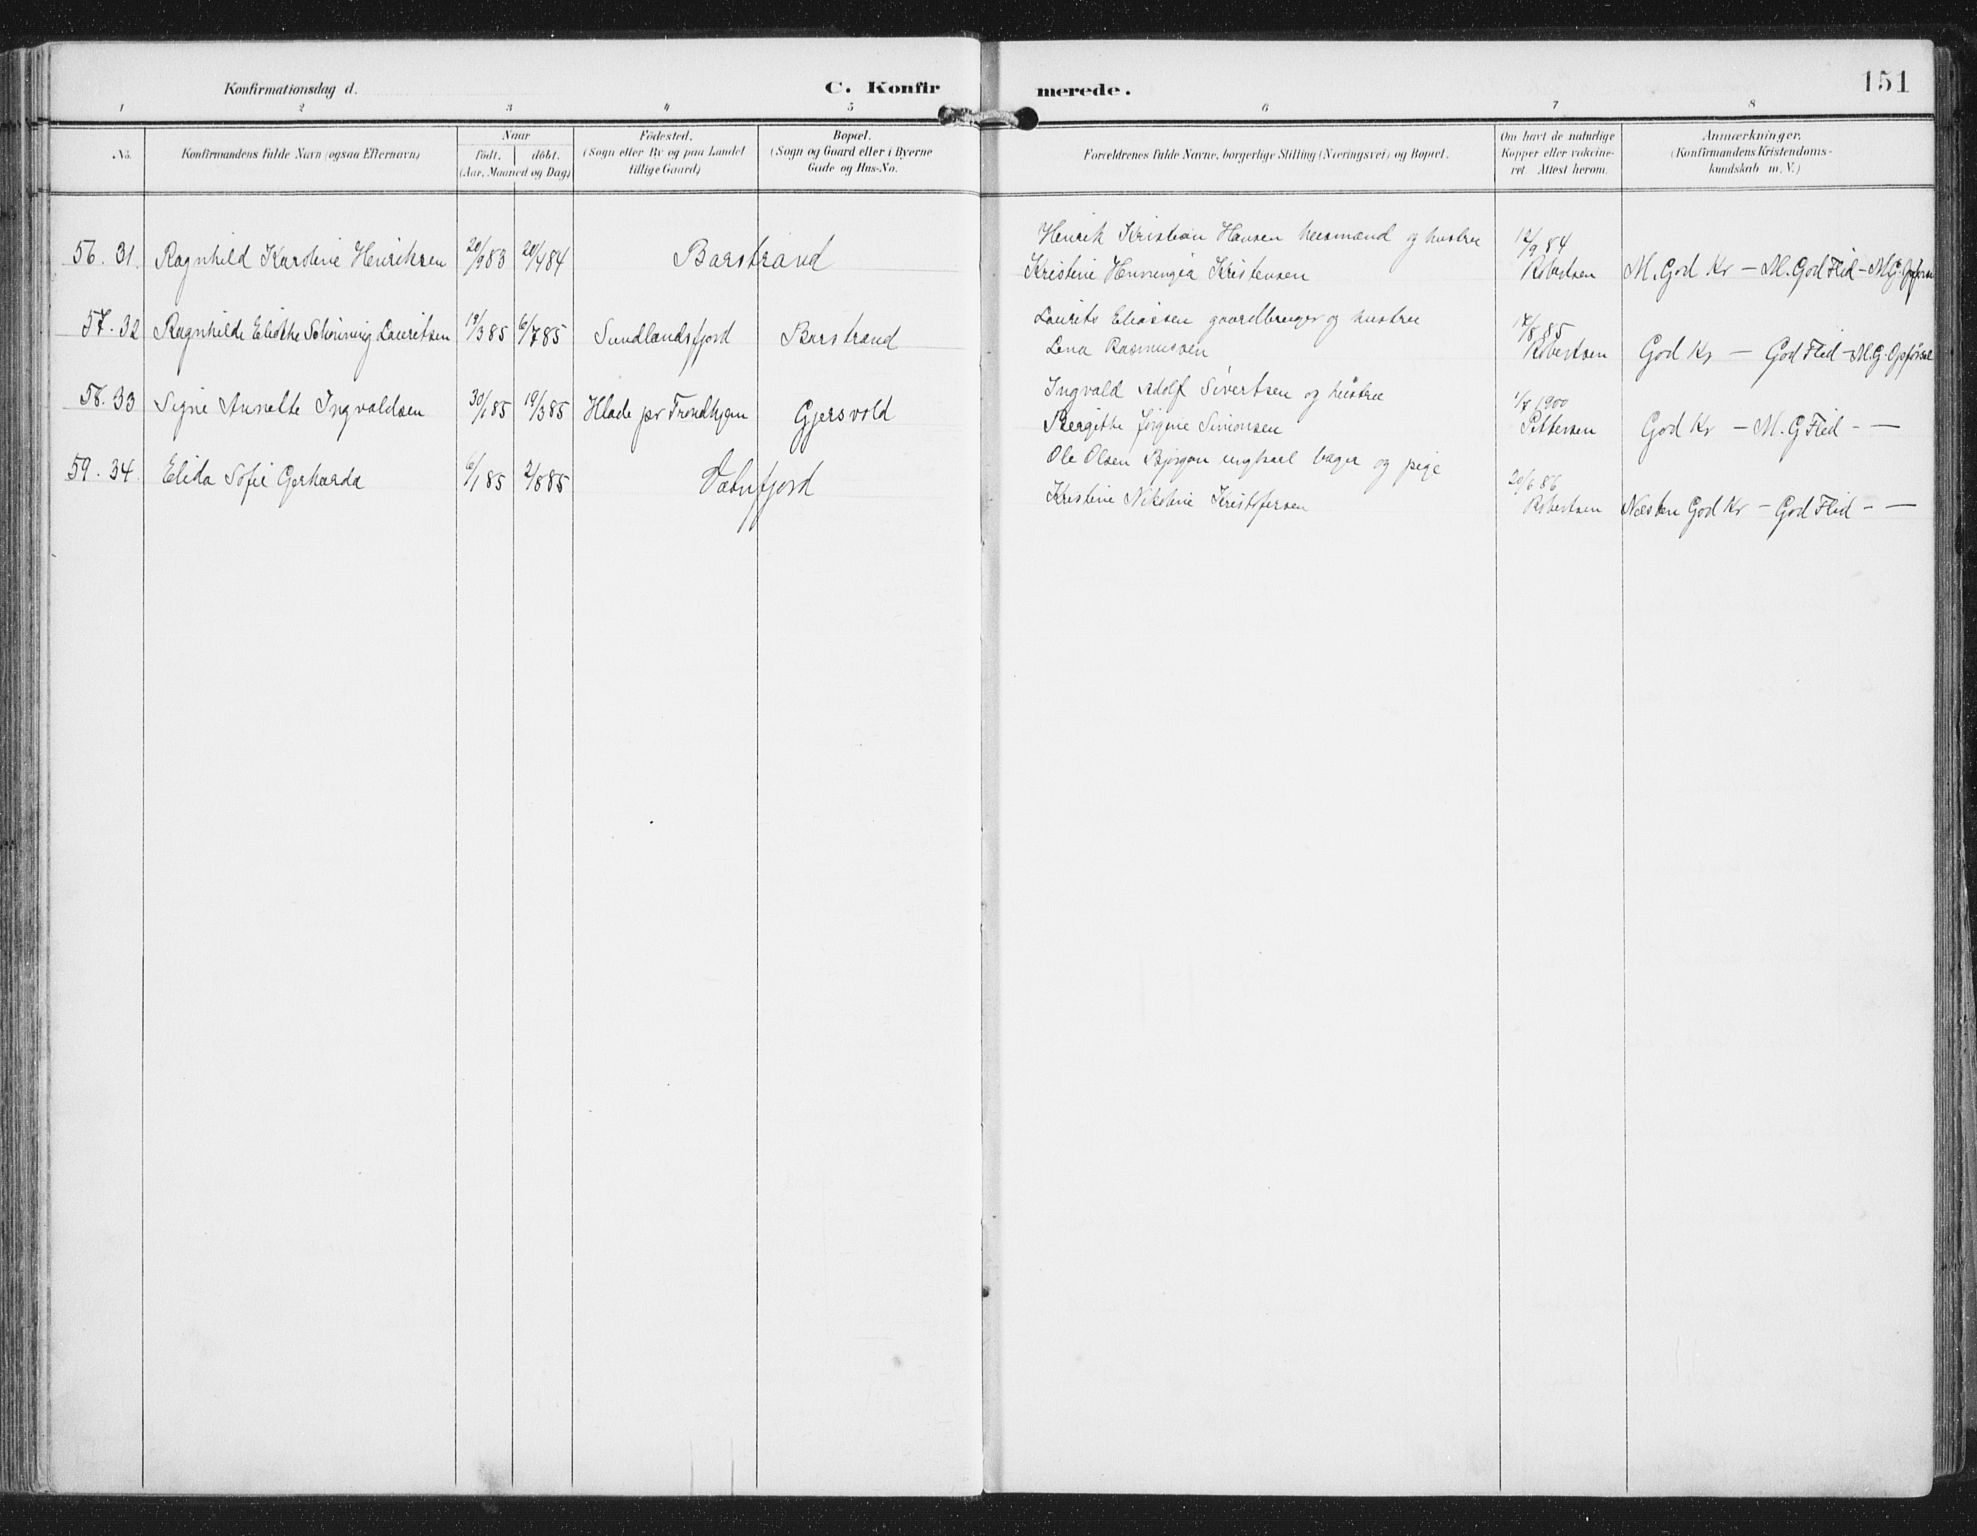 Konfirmationsdag d.
C. Konfirmerede.
151
1 2 3 4 5 6 7 8
No.
Konfirmandens fulde Navn (ogsaa Efternavn)
Naar
født. døbt.
(Aar, Maaned og Dag)
Fødested.
(Sogn eller By og paa Landet
tillige Gaard)
Bopæl.
(Sogn og Gaard eller i Byerne
Gade og Hus-No.
Forældrenes fulde Navne, borgerlige Stilling (Næringsvei) og Bopæl.
Om havt de naturlige
Kopper eller vakcine-
ret Attest herom.
Anmærkninger.
(Konfirmandens Kristendoms-
kundskab m. V.)
Henrik Kristian Hansen huusmand og hustru
56. 31. Ragnhild Karoline Henriksen 20/9 83 20/4 84 Barstrand
Kristine Henningia Kristensen
12/9 84
Robertsen
M. God Kr - M. God Flid - M.G. Opførsel
57. 32 Ragnhilde Elidthe Schönning Lauritsen 19/3 85 6/7 85 Sundlandsfjord Barstrand
Laurits Eliassen gaardbruger og hustru
Lena Rasmussen
17/8 85
Robertsen
God Kr - God Flid - M.G. Opførsel
58. 33 Signe Annette Ingvaldsen 30/1 85 19/3 85 Hlade pr Trondhjem Gjersvold
Ingvald Adolf Sivertsen og hustru
Bergitte Jørgine Simonsen
1/7 1900
Pettersen
God Kr - M. G Flid - -
59. 34. Elida Sofie Gerharda 6/1 85 2/8 85 Vatnfjord
Ole Olsen Bjørgan ungkarl bager og pige
Kristine Nikoline Kristofersen
20/6 86
Robertsen
Næsten God Kr - God Flid - -